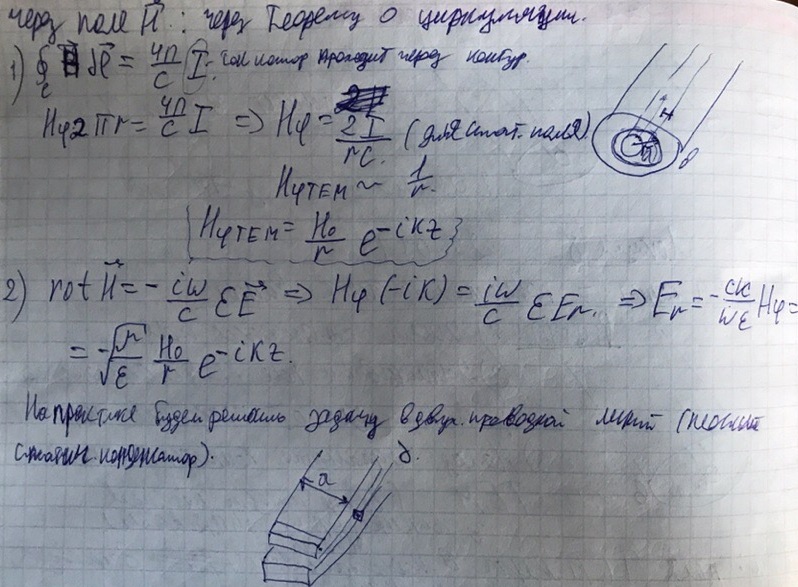 через поле H⃗ : через Теорему о циркуляции.
1) ∮ H⃗ dl⃗ = 4π/c I - ток котор проходит через контур.
Hφ 2πr = 4π/c I => Hφ = 2I/rc. (для стат. поля).
HφTEM ~ 1/r.
HφTEM = H₀/r e^-ikz
2) rot H⃗ = - iω/c εE⃗ => Hφ(-ik) = iω/c εEr. => Er = - ck/ωε Hφ =
= - √μ/√ε H₀/r e^-ikz.
На практике будем решать задачу в двух. проводной линии (плоский
конденсатор).
a